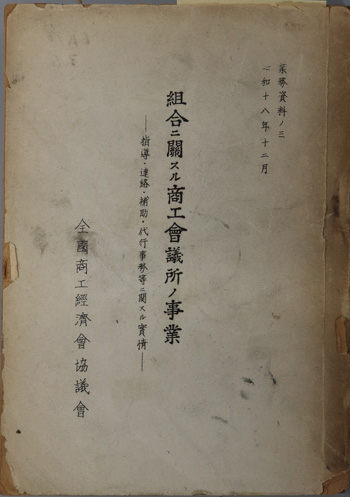 業務資料ノ三
昭和十八年十二月
組合ニ關スル商工會議所ノ事業
——指導・連絡・補助・代行事務等ニ關スル實情——
全國商工經濟會協議會